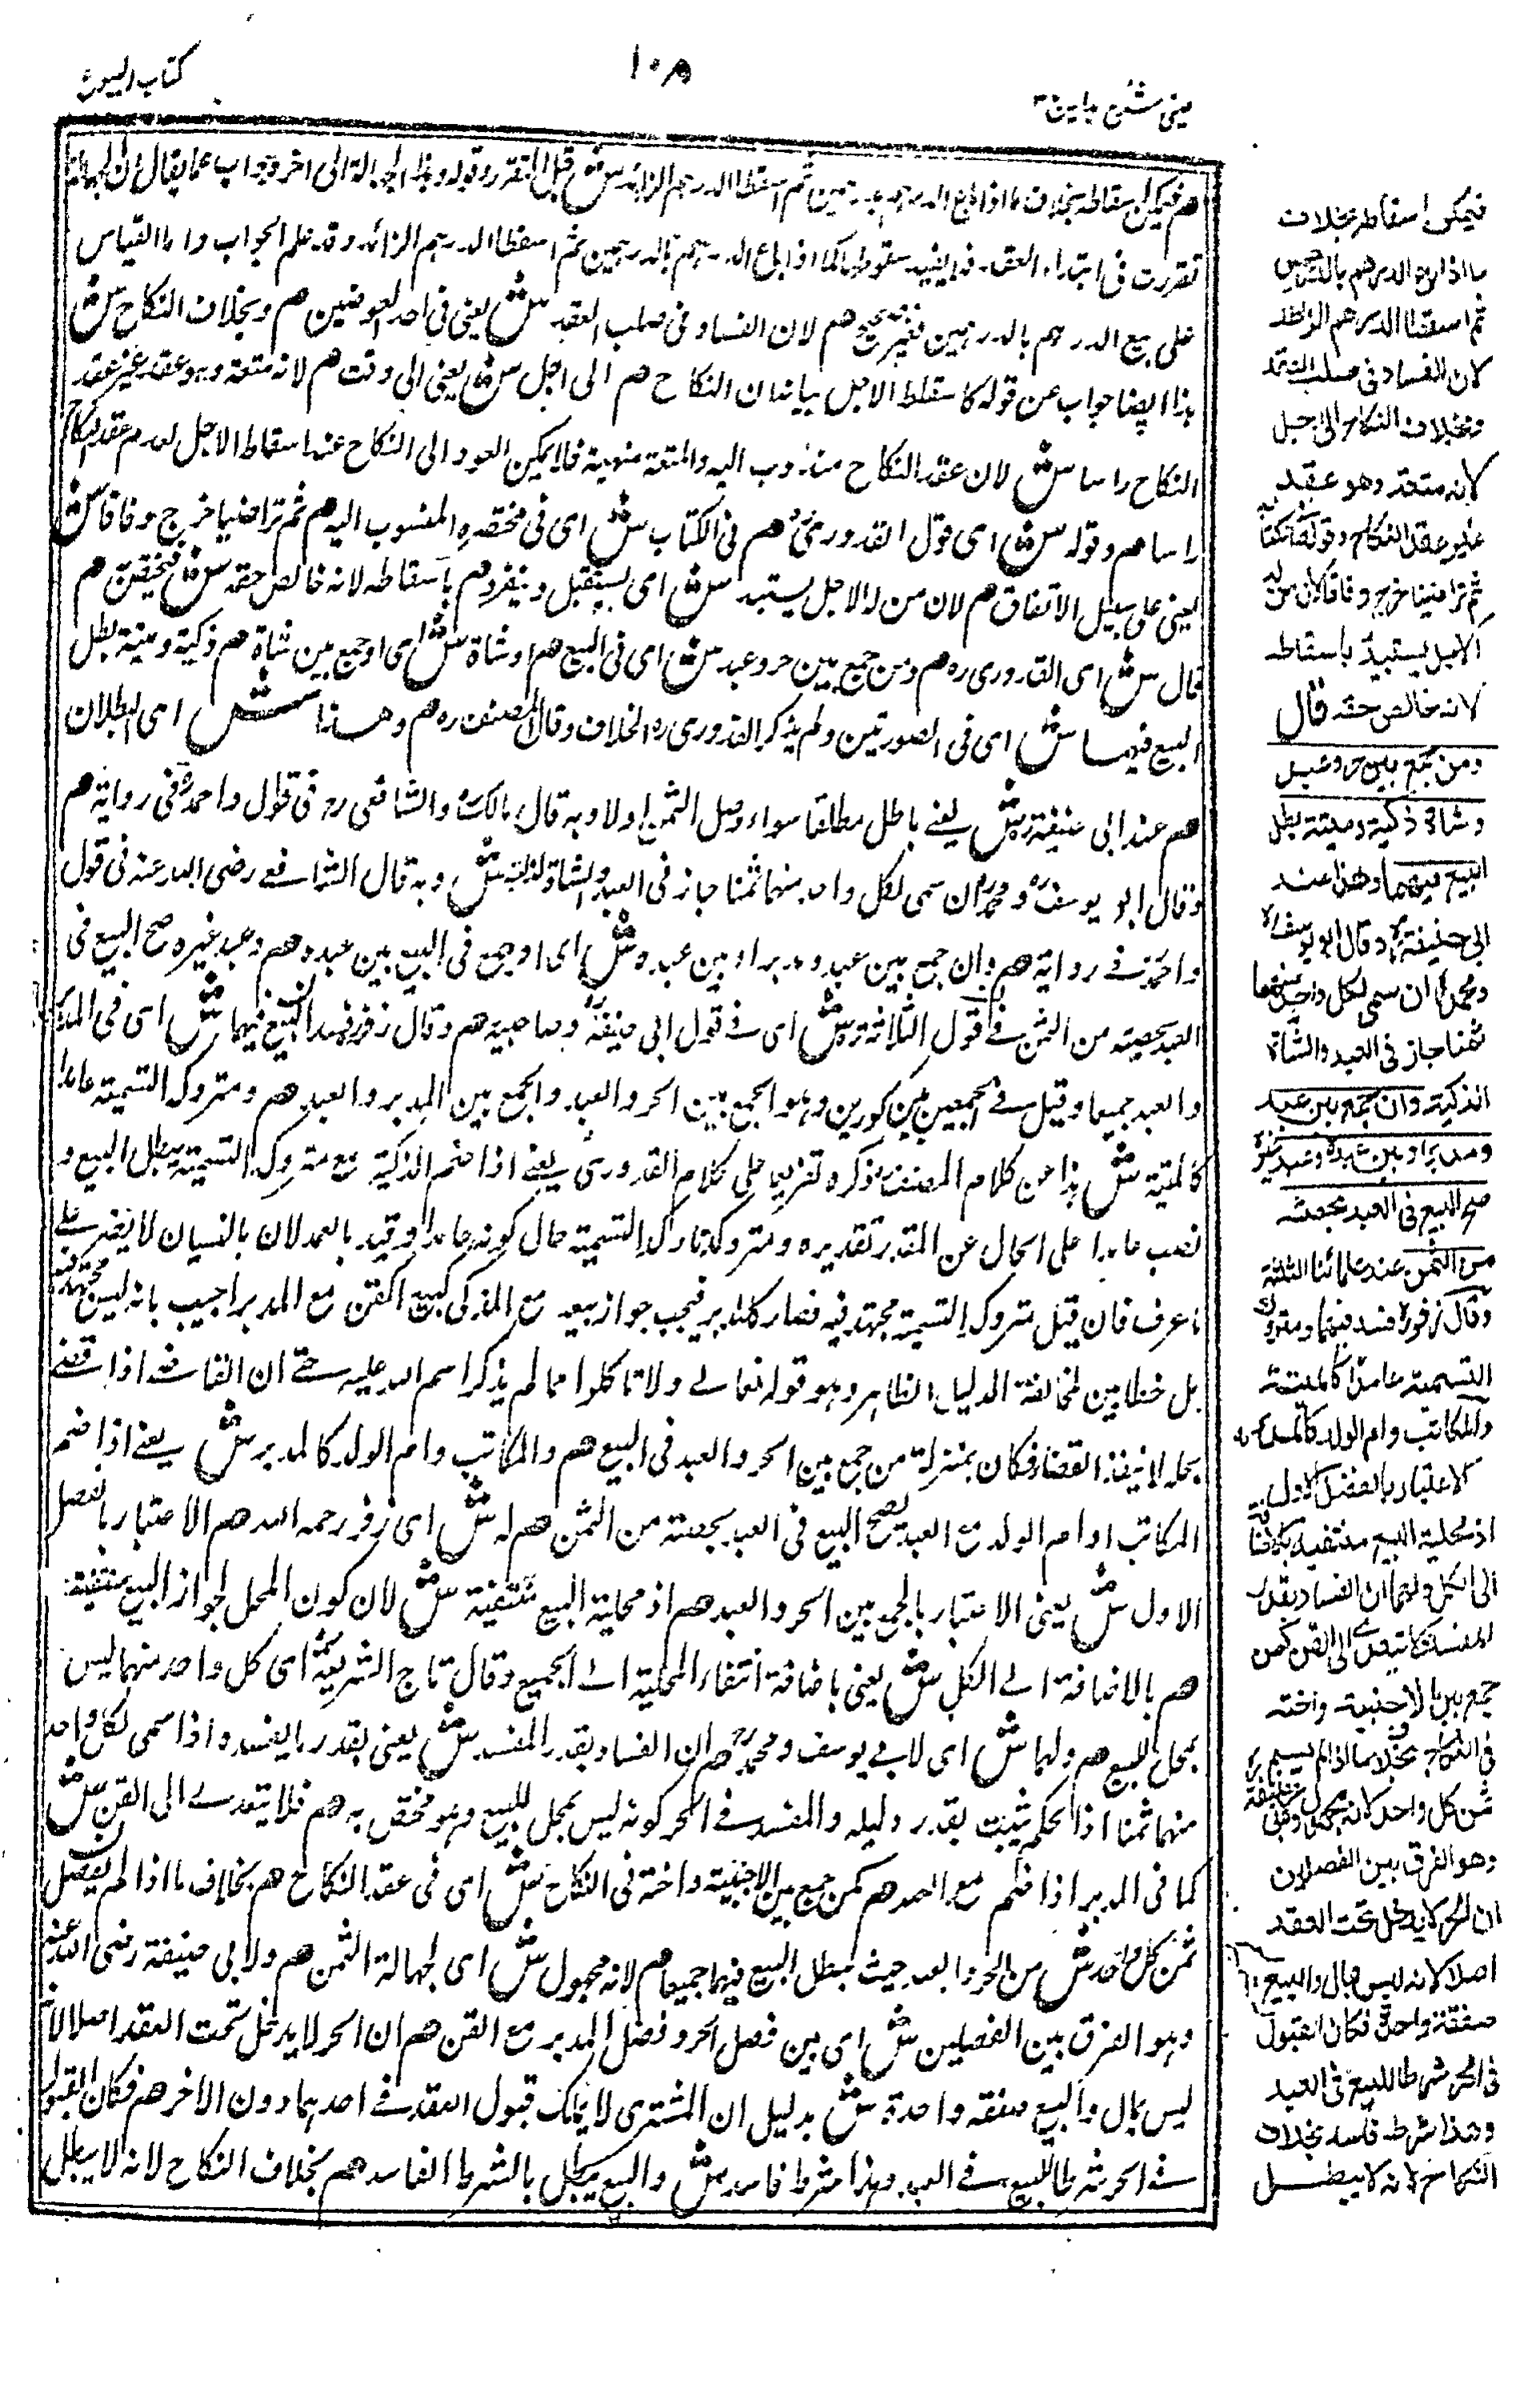 كتاب البيوع
١٠٨
عينى شرح هداية
هم فيمكن اسقاطه بخلاف ما اذا باع الدرهم بدرهمين ثم اسقطا الدرهم الزائد ش قبل التقرر وقوله وهذه الجهالة الى اخره جواب عما يقال ان الجهالة
تقررت فى ابتداء العقد فلا يفيد سقوطها كما اذا باع الدرهم بالدرهمين ثم اسقطا الدرهم الزائد وقد علم الجواب واما القياس
على بيع الدرهم بالدرهمين فغير صحيح هم لان الفساد فى صلب العقد ش يعنى فى احد العوضين هم وبخلاف النكاح ش
هذا ايضا جواب عن قوله كاسقاط الاجل بيانه ان النكاح هم الى اجل ش يعنى الى وقت هم لانه متعة وهو عقد غير عقد
النكاح راسا ش لان عقد النكاح مندوب اليه والمتعة منهية فلا يمكن العود الى النكاح عند اسقاط الاجل لعدم عقد النكاح
راسا هم وقوله ش اى قول القدورى هم فى الكتاب ش اى فى مختصره المنسوب اليه هم ثم تراضيا خرج وفاقا ش
يعنى على سبيل الاتفاق هم لان من له الاجل يستبد ش اى يستقبل وينفرد هم باسقاطه لانه خالص حقه ش فتحققت هم
قال ش اى القدورى ره هم ومن جمع بين حر وعبد ش اى فى البيع هم او شاة ش اى او جمع بين شاة هم ذكية وميتة بطل
البيع فيهما ش اى فى الصورتين ولم يذكر القدورى ره الخلاف وقال المصنف ره هم وهذا ش اى البطلان
هم عند ابى حنيفة ره ش يعنے باطل مطلقا سواء فصل الثمن او لا وبه قال مالك والشافعى ره فى قول واحمد فى رواية هم
وقال ابو يوسف ره ومحمد ره ان سمى لكل واحد منهما ثمنا جاز فى العبد والشاة الذكية ش وبه قال الشافعے رضى الله عنه فى قول
واحمد فے رواية هم وان جمع بين عبد ومدبر او بين عبده ش اى او جمع فى البيع بين عبده هم وعبد غيره صح البيع فى
العبد بحصته من الثمن فے قول الثلاثة ش اى فے قول ابى حنيفة وصاحبيه هم وقال زفر فسد البيع فيهما ش اى فى المدبر
والعبد جميعا وقيل فے الجمعين المذكورين وهو الجمع بين الحر والعبد والجمع بين المدبر والعبد هم ومتروك التسمية عامدا
كالميتة ش هذا من كلام المصنف ذكره تفريعا على كلام القدورى يعنے اذا ضم الذكية مع متروك التسمية يبطل البيع و
نصب عامدا على الحال عن المقدر تقديره ومتروكة تارك التسمية حال كونه عامدا وقيد بالعمد لان بالنسيان لا يضر على
ما عرف فان قيل متروك التسمية مجتهد فيه فصار كالمدبر فيجب جواز بيعه مع المذكى كبيع القن مع المدبر اجيب بانه ليس مجتهد فيه
بل خطا بين لمخالفة الدليل الظاهر وهو قوله تعالے ولا تاكلوا مما لم يذكر اسم الله عليه حتے ان القاضے اذا قضے
بحله لا ينفذ القضاء فكان بمنزلة من جمع بين الحر والعبد فى البيع هم والمكاتب وام الولد كالمدبر ش يعنے اذا ضم
المكاتب او ام الولد مع العبد يصح البيع فى العبد بحصته من الثمن هم له ش اى زفر رحمه الله هم الاعتبار بالفصل
الاول ش يعنى الاعتبار بالجمع بين الحر والعبد هم اذ محلية البيع منتفية ش لان كون المحل لجواز البيع منتفية
هم بالاضافة الے الكل ش يعنى باضافة انتفاء المحلية الے الجميع وقال تاج الشريعة اى كل واحد منهما ليس
بمحل للبيع هم ولهما ش اى لابے يوسف ومحمد ره هم ان الفساد بقدر المفسد ش يعنى بقدر ما يفسد واذا سمى لكل واحد
منهما ثمنا اذ الحكم يثبت بقدر دليله والمفسد فے الحر كونه ليس بمحل للبيع وهو مختص به هم فلا يتعدے الى القن ش
كما فى المدبر اذا ضم مع العبد هم كمن جمع بين الاجنبية واخته فى النكاح ش اى فى عقد النكاح هم بخلاف ما اذا لم يفصل
ثمن كل واحد ش من الحر والعبد حيث يبطل البيع فيهما جميعا هم لانه مجهول ش اى لجهالة الثمن هم ولابى حنيفة رضى الله عنه
وهو الفرق بين الفصلين ش اى بين فصل الحر وفصل المدبر مع القن هم ان الحر لا يدخل تحت العقد اصلا لانه
ليس بمال والبيع صفقه واحدة ش بدليل ان المشترى لا يملك قبول العقد فے احدهما دون الاخر هم فكان القبول
فے الحر شرطا للبيع فے العبد وهذا شرط فاسد ش والبيع يبطل بالشرط الفاسد هم بخلاف النكاح لانه لا يبطل
فيمكن اسقاطه بخلاف
ما اذا باع الدرهم بالدرهمين
ثم اسقطا الدرهم الزائد
لان الفساد فى صلب العقد
وبخلاف النكاح الى اجل
لانه متعة وهو عقد
غير عقد النكاح وقوله فى الكتاب
ثم تراضيا خرج وفاقا لان من له
الاجل يستبد باسقاطه
لانه خالص حقه قال
ومن جمع بين حر وعبد
وشاة ذكية وميتة بطل
البيع فيهما وهذا عند
ابى حنيفة ره وقال ابو يوسف ره
ومحمد ره ان سمى لكل واحد منهما
ثمنا جاز فى العبد والشاة
الذكية وان جمع بين عبد
ومدبر او بين عبده وعبد غيره
صح البيع فى العبد بحصته
من الثمن عند علمائنا الثلثة
وقال زفر ره فسد فيهما ومتروك
التسمية عامدا كالميتة
والمكاتب وام الولد كالمدبر له
الاعتبار بالفصل الاول
اذ محلية البيع منتفية بالاضافة
الى الكل ولهما ان الفساد بقدر
المفسد فلا يتعدے الى القن كمن
جمع بين الاجنبية واخته
فى النكاح بخلاف ما اذا لم يسم
ثمن كل واحد لانه مجهول ولابى حنيفة
وهو الفرق بين الفصلين
ان الحر لا يدخل تحت العقد
اصلا لانه ليس بمال والبيع
صفقة واحدة فكان القبول
فى الحر شرطا للبيع فى العبد
وهذا شرط فاسد بخلاف
النكاح لانه لا يبطل